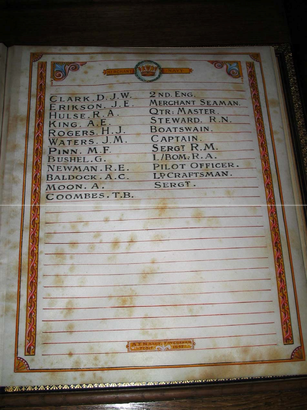 CLARK. D.J.W. 2ND. ENG.
ERIKSON. J.E. MERCHANT SEAMAN.
HULSE. R.A. QTR. MASTER.
KING. A.E. STEWARD. R.N.
ROGERS. H.J. BOATSWAIN.
WATERS. J.M. CAPTAIN.
PINN. M.F. SERGT R.M.
BUSHEL. G. L/BOM. R.A.
NEWMAN. R.E. PILOT OFFICER.
BALDOCK. A.C. L/CRAFTSMAN.
MOON. A. SERGT.
COOMBES. T.B.